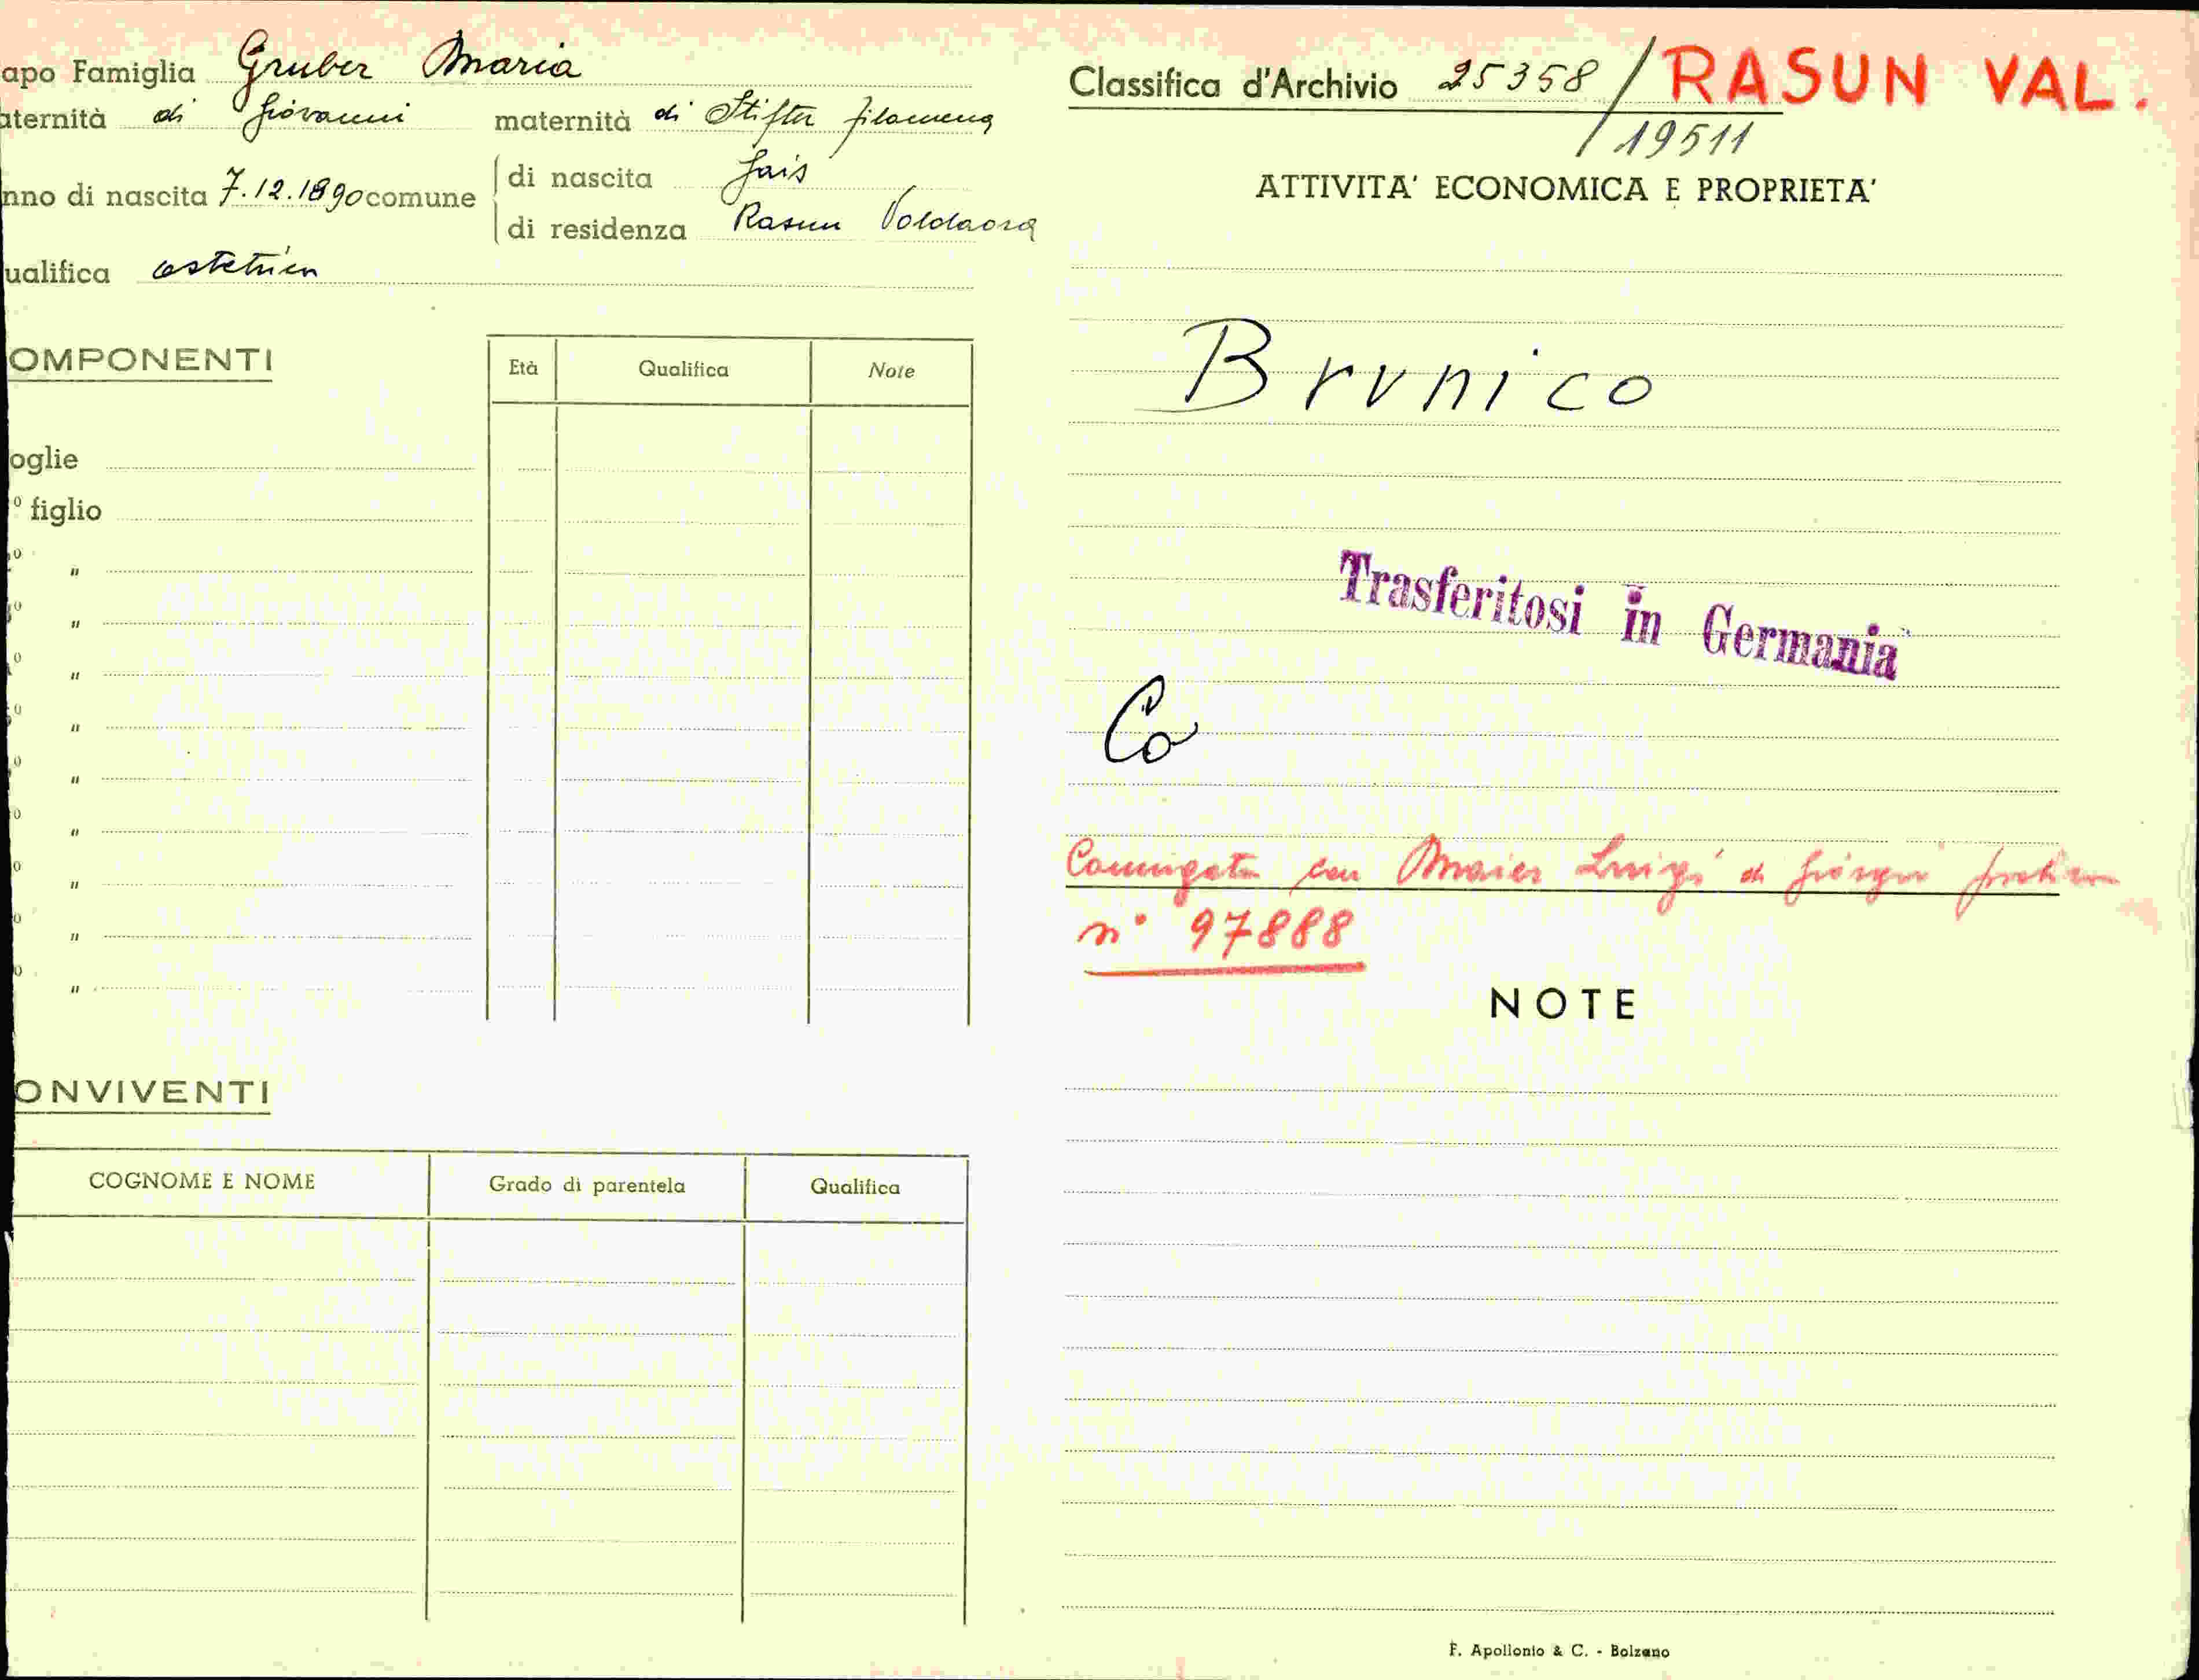 apo Famiglia Gruber Maria
aternità di Giovanni maternità di Stifter Filomena
nno di nascita 7.12.1890 comune di nascita Gais
di residenza Rasun Valdaora
ualifica ostetrica
OMPONENTI Età Qualifica Note
oglie
º figlio
º "
º "
º "
º "
º "
º "
º "
º "
º "
ONVIVENTI
COGNOME E NOME Grado di parentela Qualifica
Classifica d'Archivio 25358 / RASUN VAL.
/ 19511
ATTIVITA' ECONOMICA E PROPRIETA'
Brunico
Trasferitosi in Germania
Co
Coniugata con Maier Luigi di Giorgio
n° 97888
NOTE
F. Apollonio & C. - Bolzano